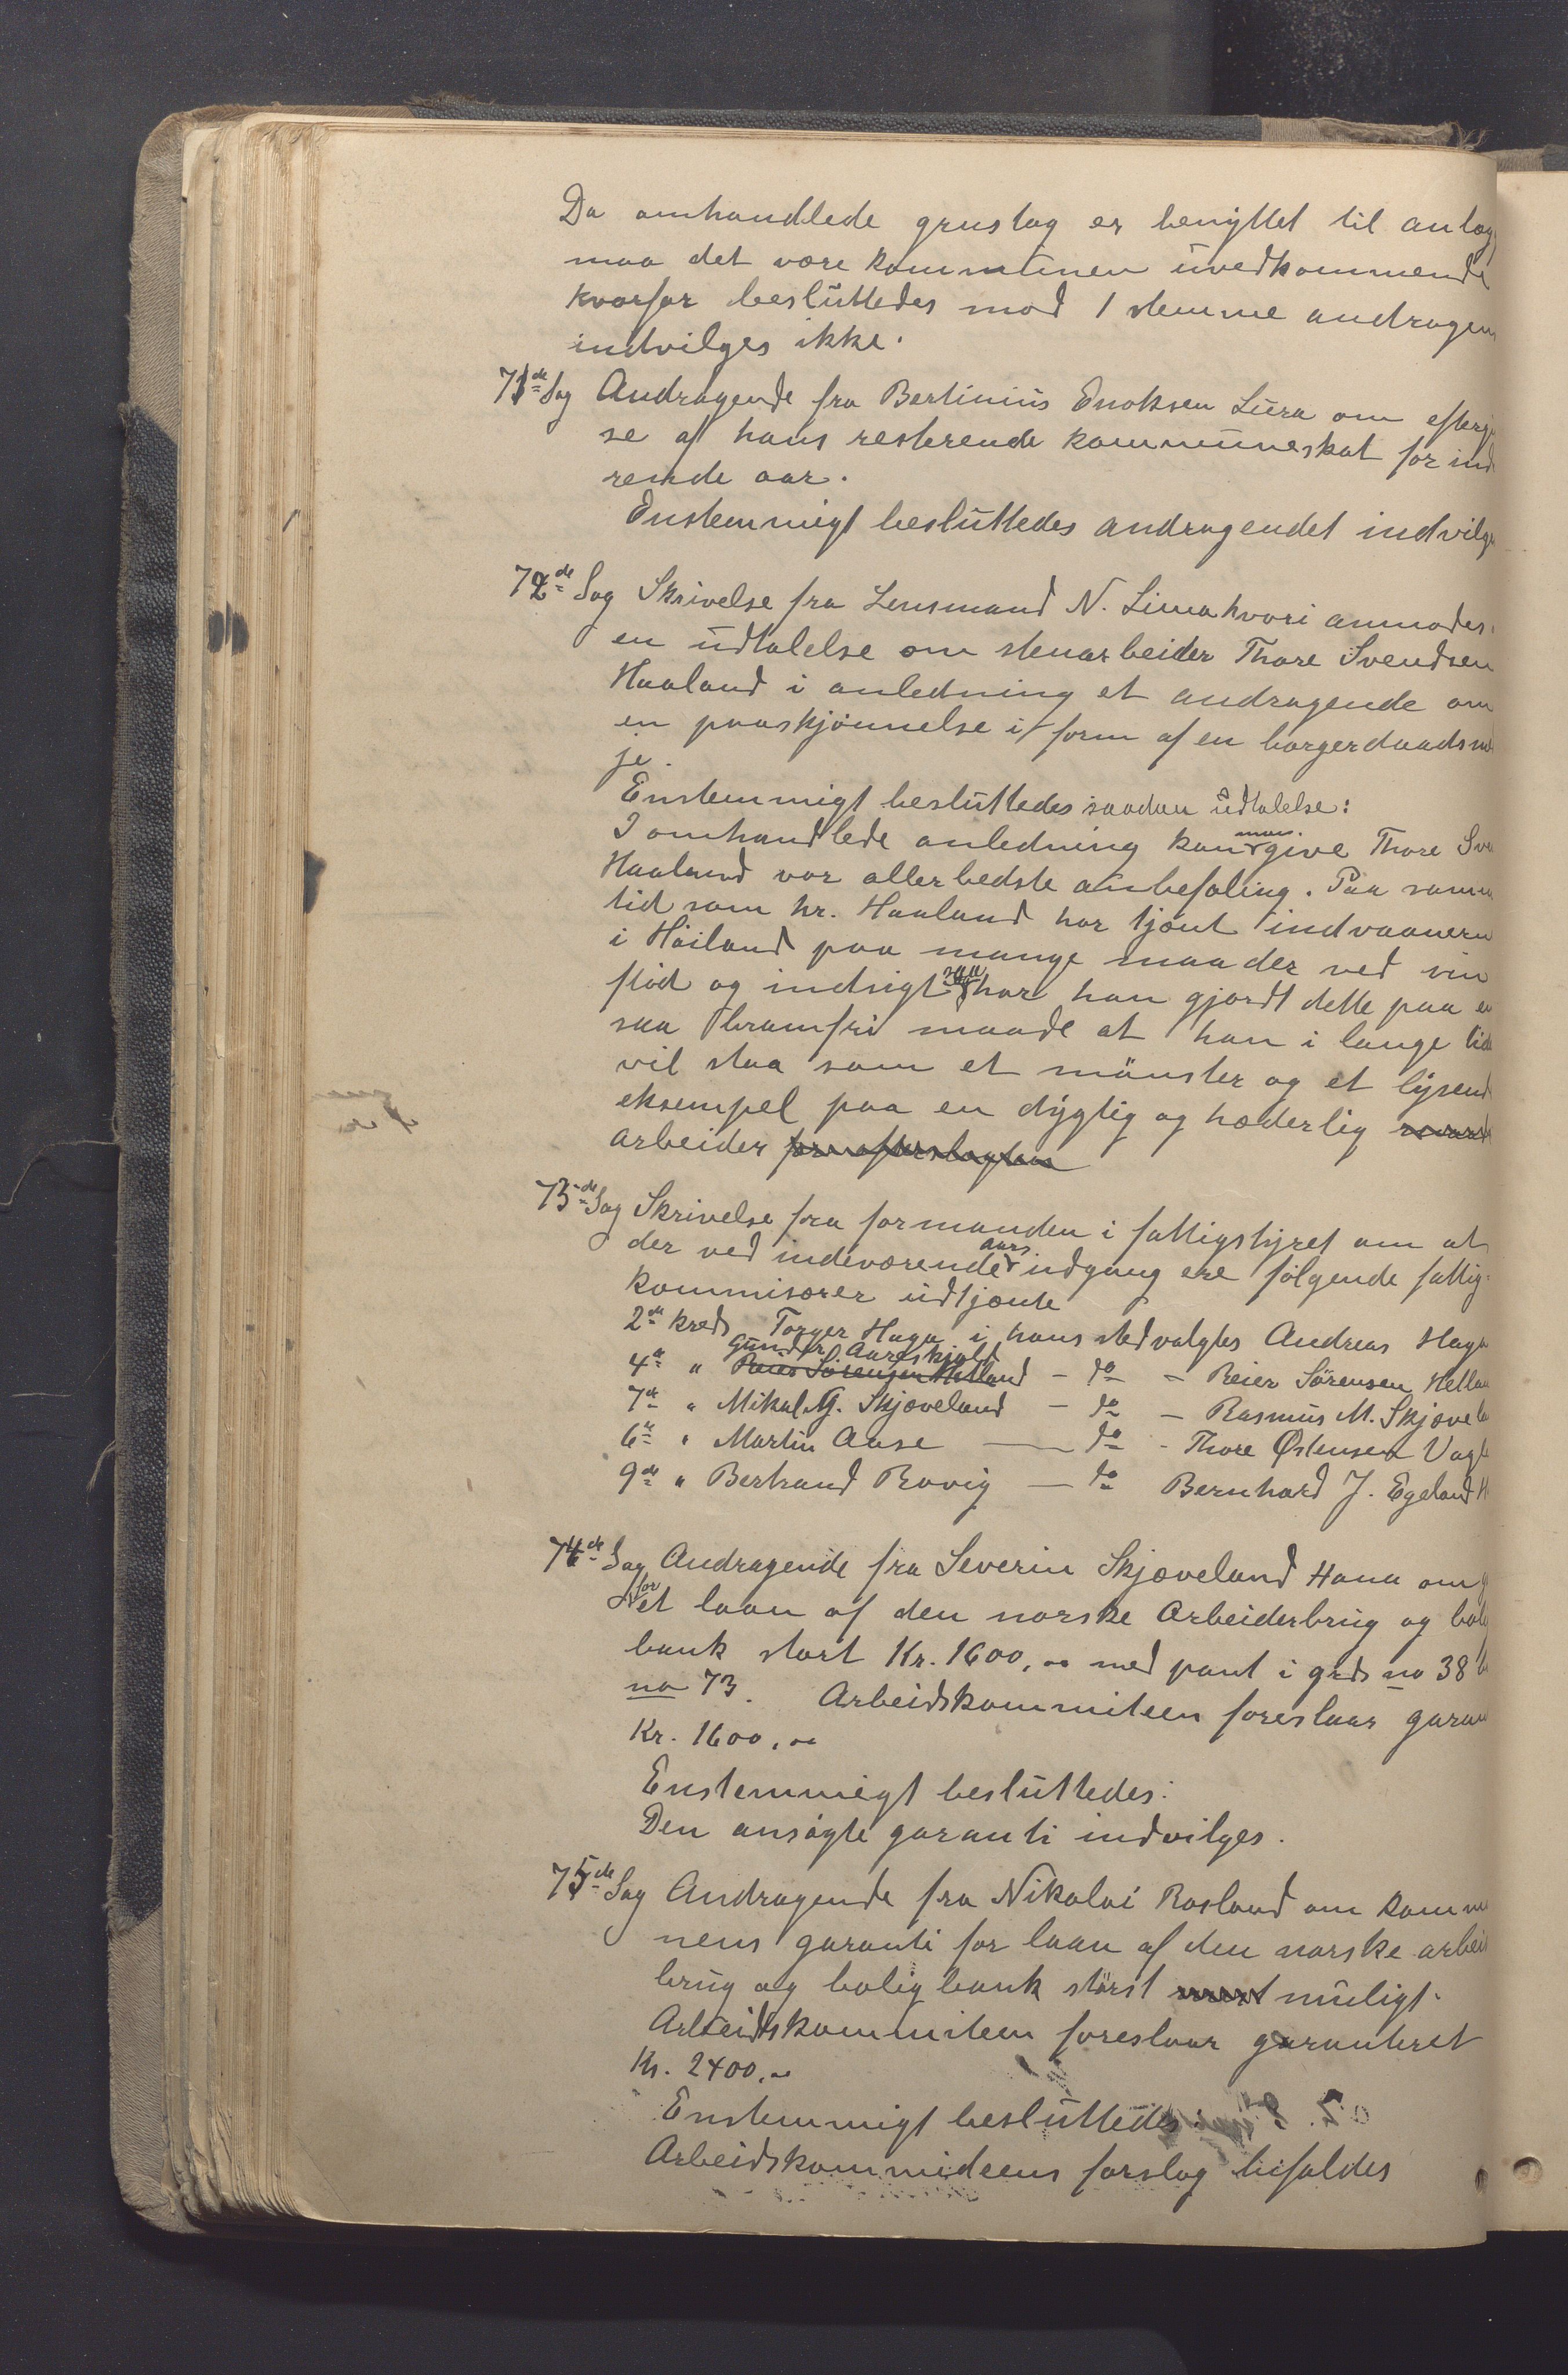 Da omhandlede grustag er benyttet til anlæg
maa det være kommunen uvedkommende
hvorfor besluttedes mod 1 stemme andragen
indvilges ikke.
71de Sag Andragende fra Bertinius Enoksen Lura om efterg
se af hans resterende kommuneskat for ind
rende aar.
Enstemmigt besluttedes andragendet indvilg
72de Sag Skrivelse fra Lensmand N. Lima hvori anmodes
en udtalelse om stenarbeider Thore Svendsen
Haaland i anledning et andragende om
en paaskjønnelse i form af en borgerdaadsme
je.
Enstemmigt besluttedes saadan udtalelse:
I omhandlede anledning kan man give Thore Sve
Haaland vor allerbedste anbefaling. Paa samm
tid som hr. Haaland har tjent indvaanern
i Høiland paa mange maader ved sin
flid og indsigt saa har han gjordt dette paa en
saa bramfri maade at han i lange tide
vil staa som et mønster og et lysend
eksempel paa en dygtig og hæderlig
arbeider
73de Sag Skrivelse fra formanden i fattigstyret om at
der ved indeværende aars udgang ere følgende fattig-
kommisærer udtjente
2den kreds Torger Haga i hans sted valgtes Andreas Haga
4de " Gunder Aareskjold – do – Reier Sørensen Hellan
7de " Mikal G. Skjæveland – do – Rasmus M. Skjævela
6te " Martin Aase — do - Thore Østensen Vagle
9de " Bertrand Rovig — do Bernhard J. Egeland H
74de Sag Andragende fra Severin Skjæveland Hana om g
for et laan af den norske Arbeiderbrug og bolig
bank stort Kr. 1600,00 med pant i grds no 38 b
no 73. Arbeidskommiteen foreslaar garan
Kr. 1600,00
Enstemmigt besluttedes:
Den ansøgte garanti indvilges.
75de Sag Andragende fra Nikolai Rosland om kommu
nens garanti for laan af den norske arbeid
brug og boligbank størst muligt.
Arbeidskommiteen foreslaar garanteret
Kr. 2400,00
Enstemmigt besluttedes:
Arbeidskommideens forslag bifaldes